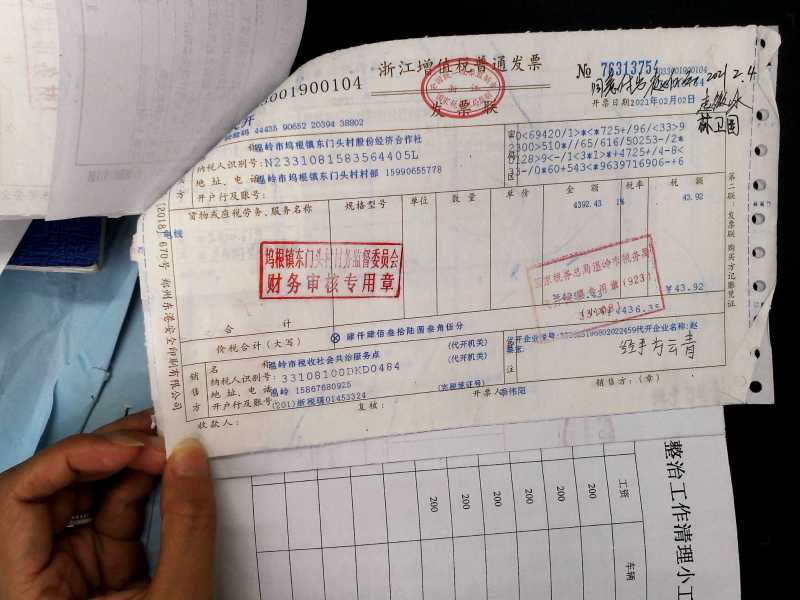 浙江增值税普通发票
发票联
浙江
001900104
№ 76313751
3300190104
开票日期2021年02月02日
2021.2.4
林卫国
代开
校验码 44435 90652 20394 38802
温岭市坞根镇东门头村股份经济合作社
纳税人识别号:N2331081583564405L
地址、电话 温岭市坞根镇东门头村村部 15990655778
开户行及账号
方
密
区
0<69420/1>*<*725+/96/<33>9
2300>510*//65/616/50253-/2*
2128>9-/1<3*1>*+4725+/4-8<
33-/0*60+543<*9639716906-+6
货物或应税劳务、服务名称 规格型号 单位 数量 单价 金额 税率 税额
电线 4392.43 1% 43.92
坞根镇东门头村村务监督委员会
财务审核专用章
国家税务总局温岭市税务局
(923)
合计 ¥43.92
价税合计(大写) 肆仟肆佰叁拾陆圆叁角伍分
名称 温岭市税收社会共治服务点 (代开机关)
纳税人识别号:33108100DKD0484 (代开机关)
地址、电话 温岭 15867680925
开户行及账号 (201)浙税现01453324 (完税凭证号)
销售方
备注
代开企业名称:赵
经手 方云青
收款人:
复核:
开票人
销售方:(章)
[2018] 670号 郑州东港安全印刷有限公司
第二联:发票联 购买方记账凭证
整治工作清理小工
工资
车辆
200 200 200 200 200 200